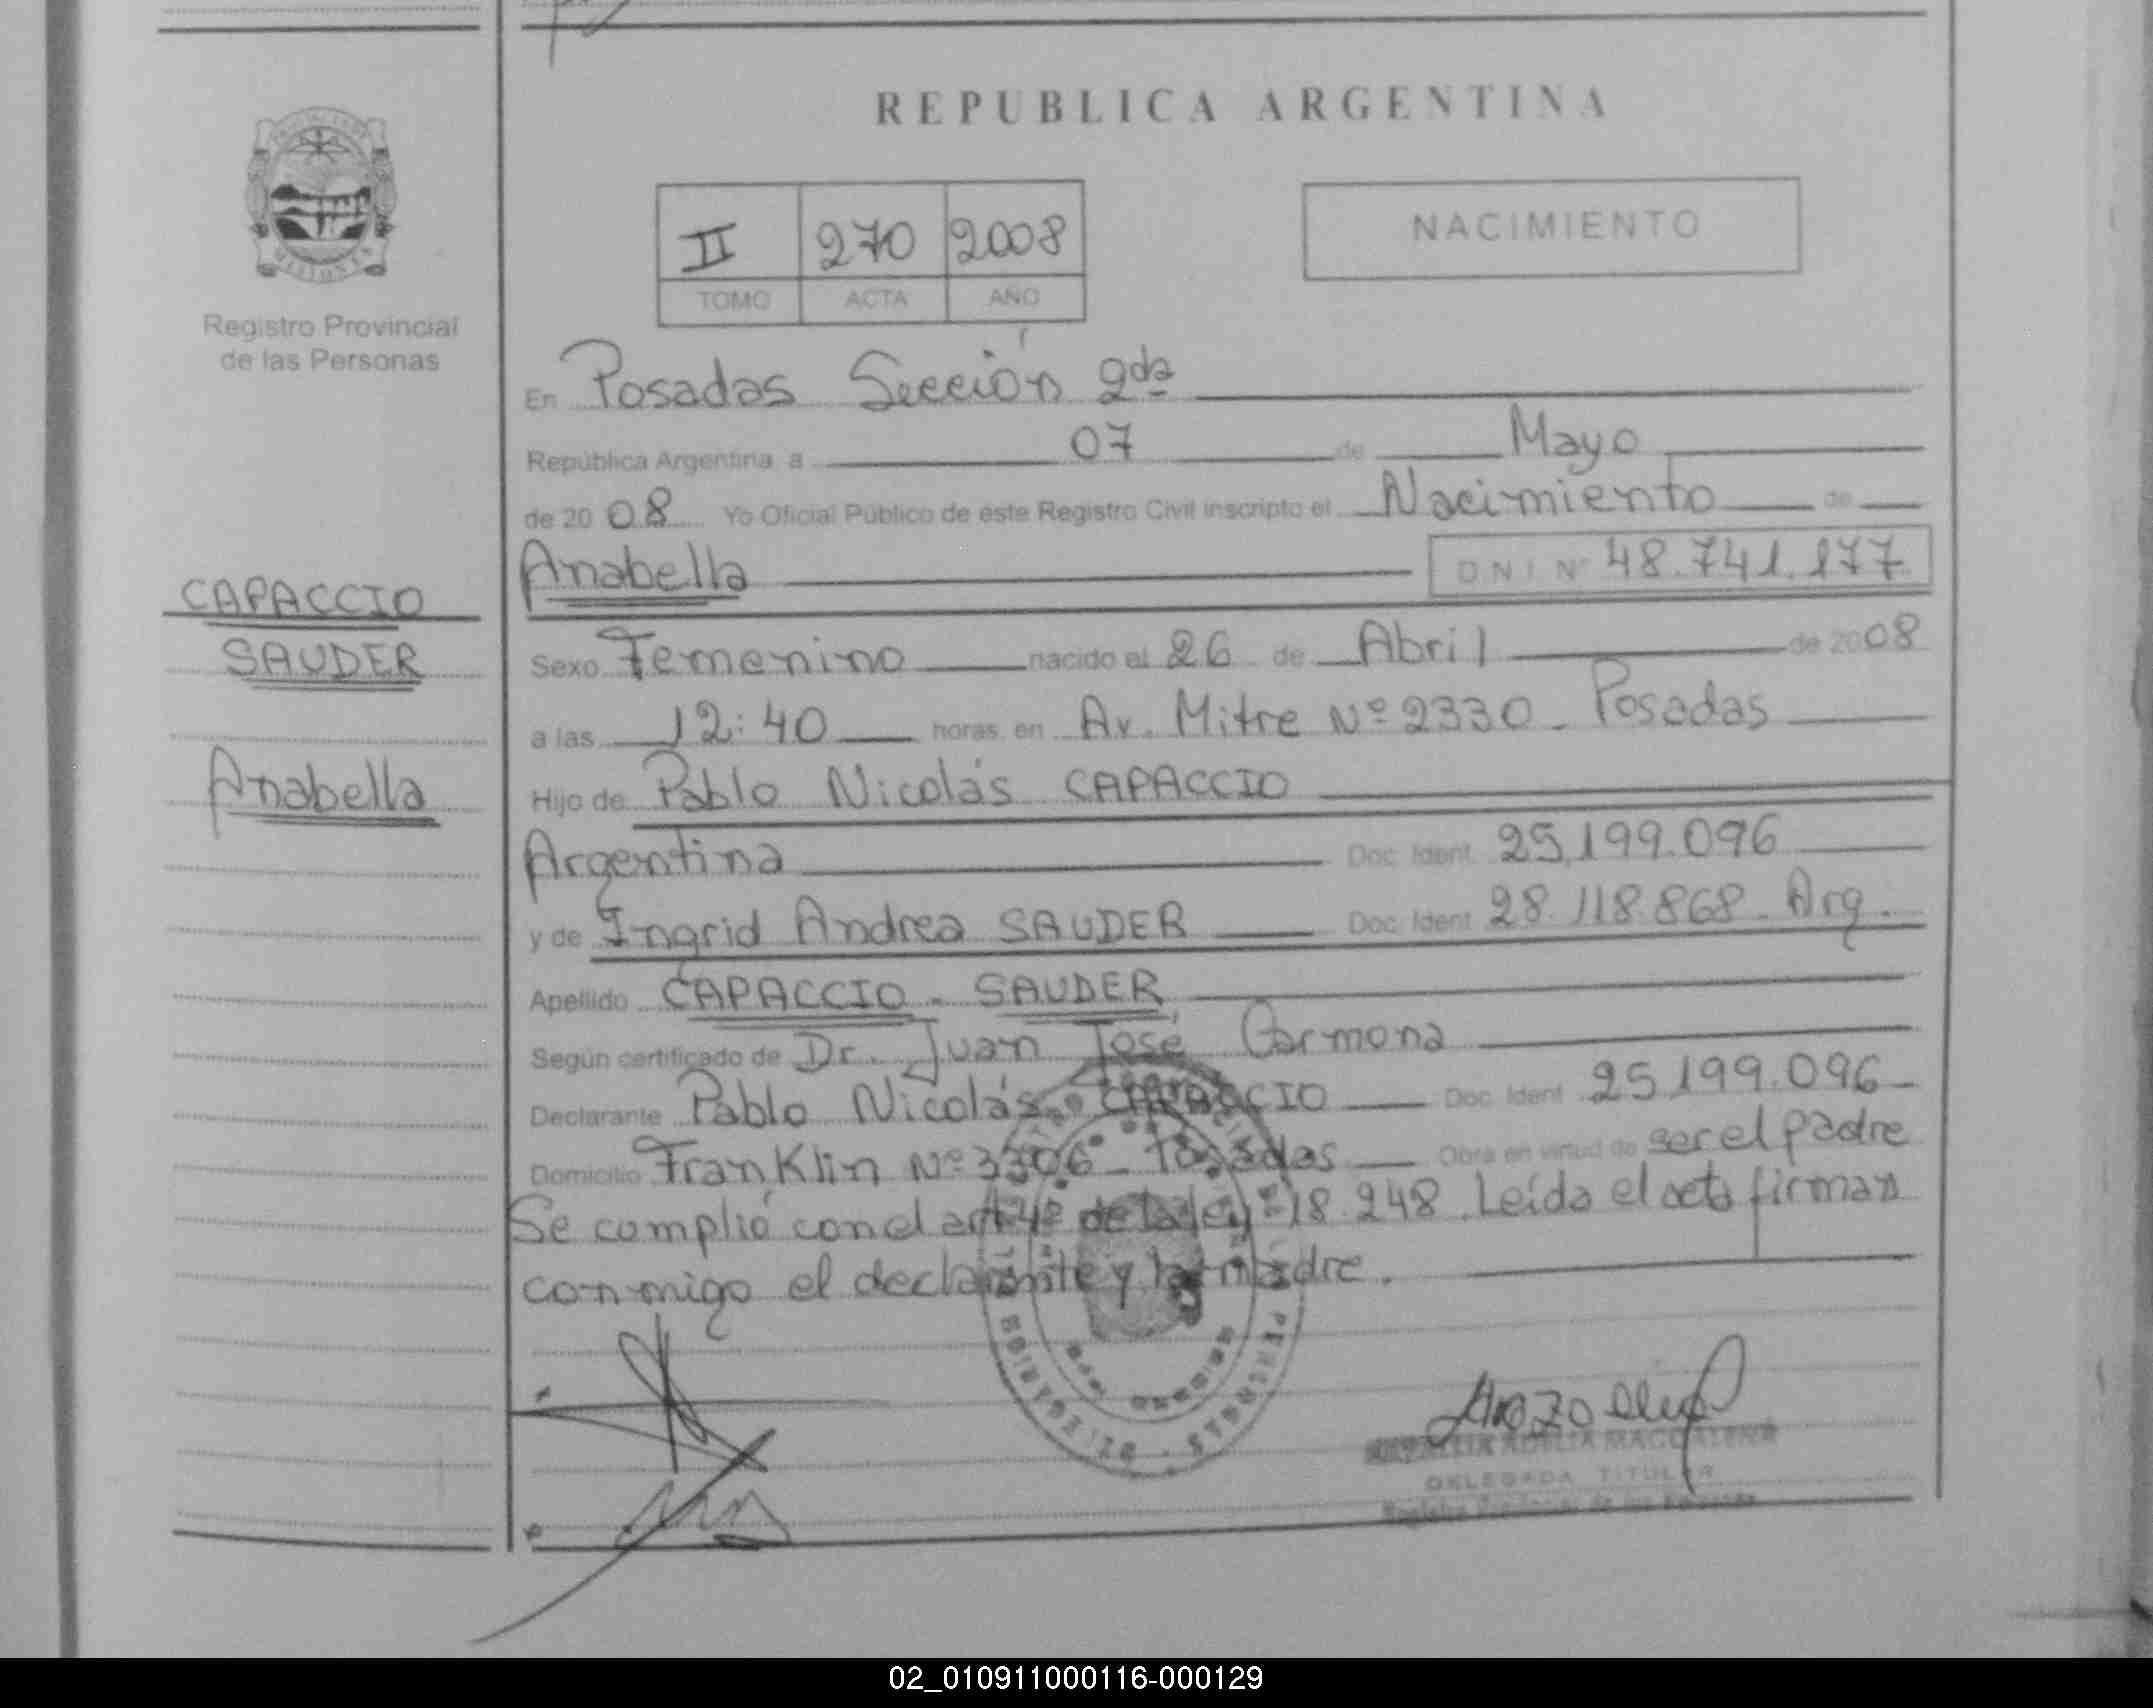 REPUBLICA ARGENTINA
II 270 2008
TOMO ACTA AÑO
NACIMIENTO
MISIONES
Registro Provincial
de las Personas
En Posadas Sección 2da
República Argentina a 07 de Mayo
de 2008 Yo Oficial Público de este Registro Civil inscripto el Nacimiento de
Anabella DNI Nº 48.741.177
CAPACCIO
SAUDER
Anabella
Sexo Femenino nacido el 26 de Abril de 2008
a las 12:40 horas en Av. Mitre Nº 2330 - Posadas
Hijo de Pablo Nicolás CAPACCIO
Argentina Doc. Ident. 25.199.096
y de Ingrid Andrea SAUDER Doc. Ident. 28.118.868 - Arg.
Apellido CAPACCIO - SAUDER
Según certificado de Dr. Juan José Carmona
Declarante Pablo Nicolás CAPACCIO Doc. Ident. 25.199.096
Domicilio Franklin Nº 3306 - Posadas Obra en virtud de ser el padre
Se cumplió con el art 4º de la ley 18.248. Leída el acta firman
conmigo el declarante y la madre.
ADELIA MAGDALENA
DELEGADA TITULAR
Registro Provincial de las Personas
02_010911000116-000129